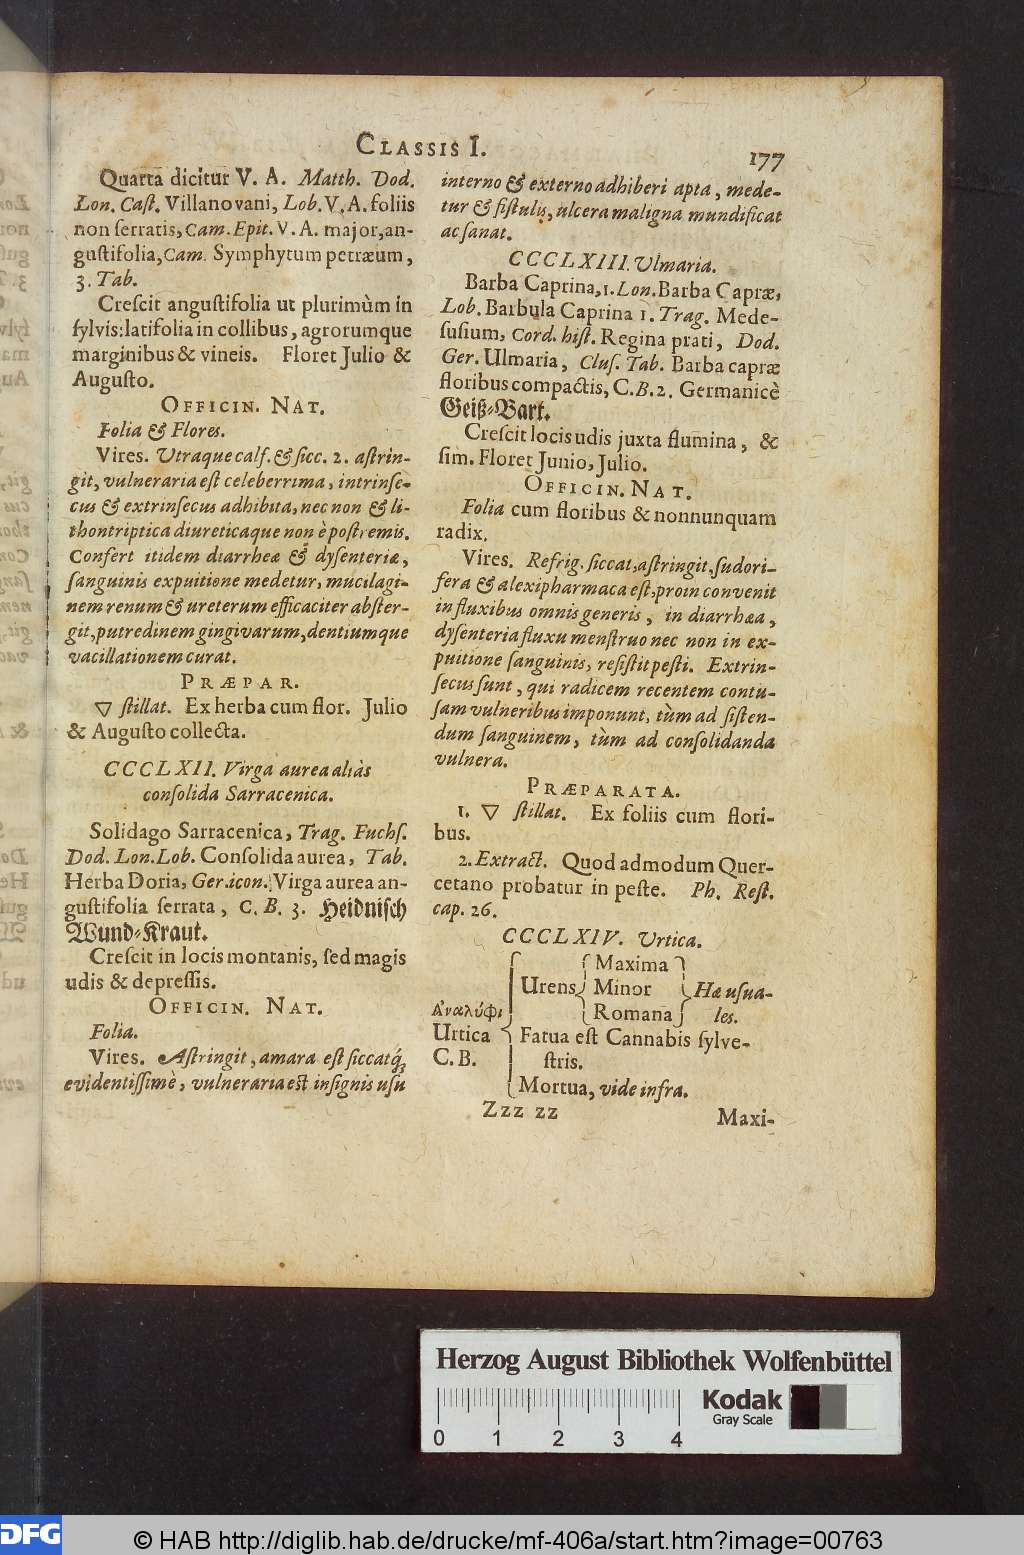 CLASSIS I.
177
Quarta dicitur V. A. Matth. Dod.
Lon. Cast. Villanovani, Lob. V. A. foliis
non serratis, Cam. Epit. V. A. major, an-
gustifolia, Cam. Symphytum petræum,
3. Tab.
Crescit angustifolia ut plurimùm in
sylvis: latifolia in collibus, agrorumque
marginibus & vineis. Floret Julio &
Augusto.
OFFICIN. NAT.
Folia & Flores.
Vires. Utraque calf. & sicc. 2. astrin-
git, vulneraria est celeberrima, intrinse-
cus & extrinsecus adhibita, nec non & li-
thontriptica diureticaque non è postremis.
Confert itidem diarrheæ & dysenteriæ,
sanguinis expuitione medetur, mucilagi-
nem renum & ureterum efficaciter abster-
git, putredinem gingivarum, dentiumque
vacillationem curat.
PRÆPAR.
▽ stillat. Ex herba cum flor. Julio
& Augusto collecta.
CCCLXII. Virga aurea aliàs
consolida Sarracenica.
Solidago Sarracenica, Trag. Fuchs.
Dod. Lon. Lob. Consolida aurea, Tab.
Herba Doria, Ger. icon. Virga aurea an-
gustifolia serrata, C. B. 3. Heidnisch
Wund-Kraut.
Crescit in locis montanis, sed magis
udis & depressis.
OFFICIN. NAT.
Folia.
Vires. Astringit, amara est siccatq́;
evidentissimè, vulneraria est insignis usu
interno & externo adhiberi apta, mede-
tur & fistulis, ulcera maligna mundificat
ac sanat.
CCCLXIII. Ulmaria.
Barba Caprina, 1. Lon. Barba Capræ,
Lob. Barbula Caprina 1. Trag. Mede-
susium, Cord. hist. Regina prati, Dod.
Ger. Ulmaria, Clus. Tab. Barba capræ
floribus compactis, C. B. 2. Germanicè
Geiß-Bart.
Crescit locis udis juxta flumina, &
sim. Floret Junio, Julio.
OFFICIN. NAT.
Folia cum floribus & nonnunquam
radix.
Vires. Refrig. siccat, astringit, sudori-
fera & alexipharmaca est, proin convenit
in fluxibus omnis generis, in diarrhæa,
dysenteria fluxu menstruo nec non in ex-
puitione sanguinis, resistit pesti. Extrin-
secus sunt, qui radicem recentem contu-
sam vulneribus imponunt, tùm ad sisten-
dum sanguinem, tùm ad consolidanda
vulnera.
PRÆPARATA.
1. ▽ stillat. Ex foliis cum flori-
bus.
2. Extract. Quod admodum Quer-
cetano probatur in peste. Ph. Rest.
cap. 26.
CCCLXIV. Urtica.
Maxima
Urens Minor Hæ usua-
Ἀναλύφι Romana les.
Urtica Fatua est Cannabis sylve-
C. B. stris.
Mortua, vide infra.
Zzz zz
Maxi-
Herzog August Bibliothek Wolfenbüttel
Kodak
Gray Scale
0 1 2 3 4
DFG
© HAB http://diglib.hab.de/drucke/mf-406a/start.htm?image=00763